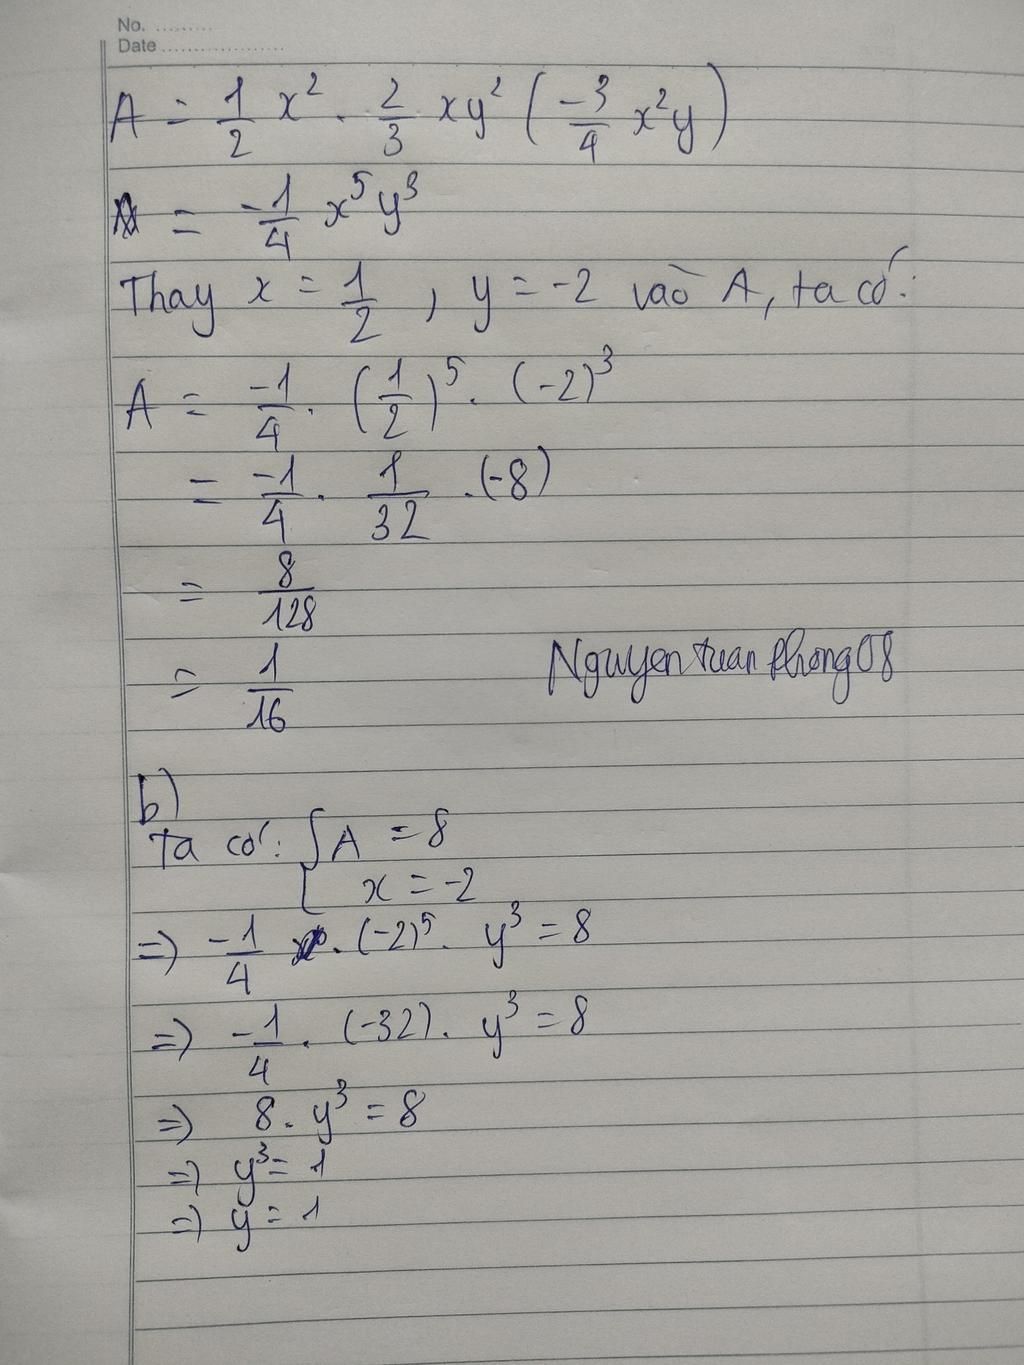 No. .........
Date ...................
A = 1/2 x² . 2/3 xy² (-3/4 x²y)
= -1/4 x⁵y³
Thay x = 1/2 , y = -2 vào A, ta có:
A = -1/4 . (1/2)⁵ . (-2)³
= -1/4 . 1/32 .(-8)
= 8/128
= 1/16
Nguyentuanphong08
b)
Ta có: { A = 8
x = -2
=> -1/4 . (-2)⁵. y³ = 8
=> -1/4 . (-32). y³ = 8
=> 8. y³ = 8
=> y³ = 1
=> y = 1